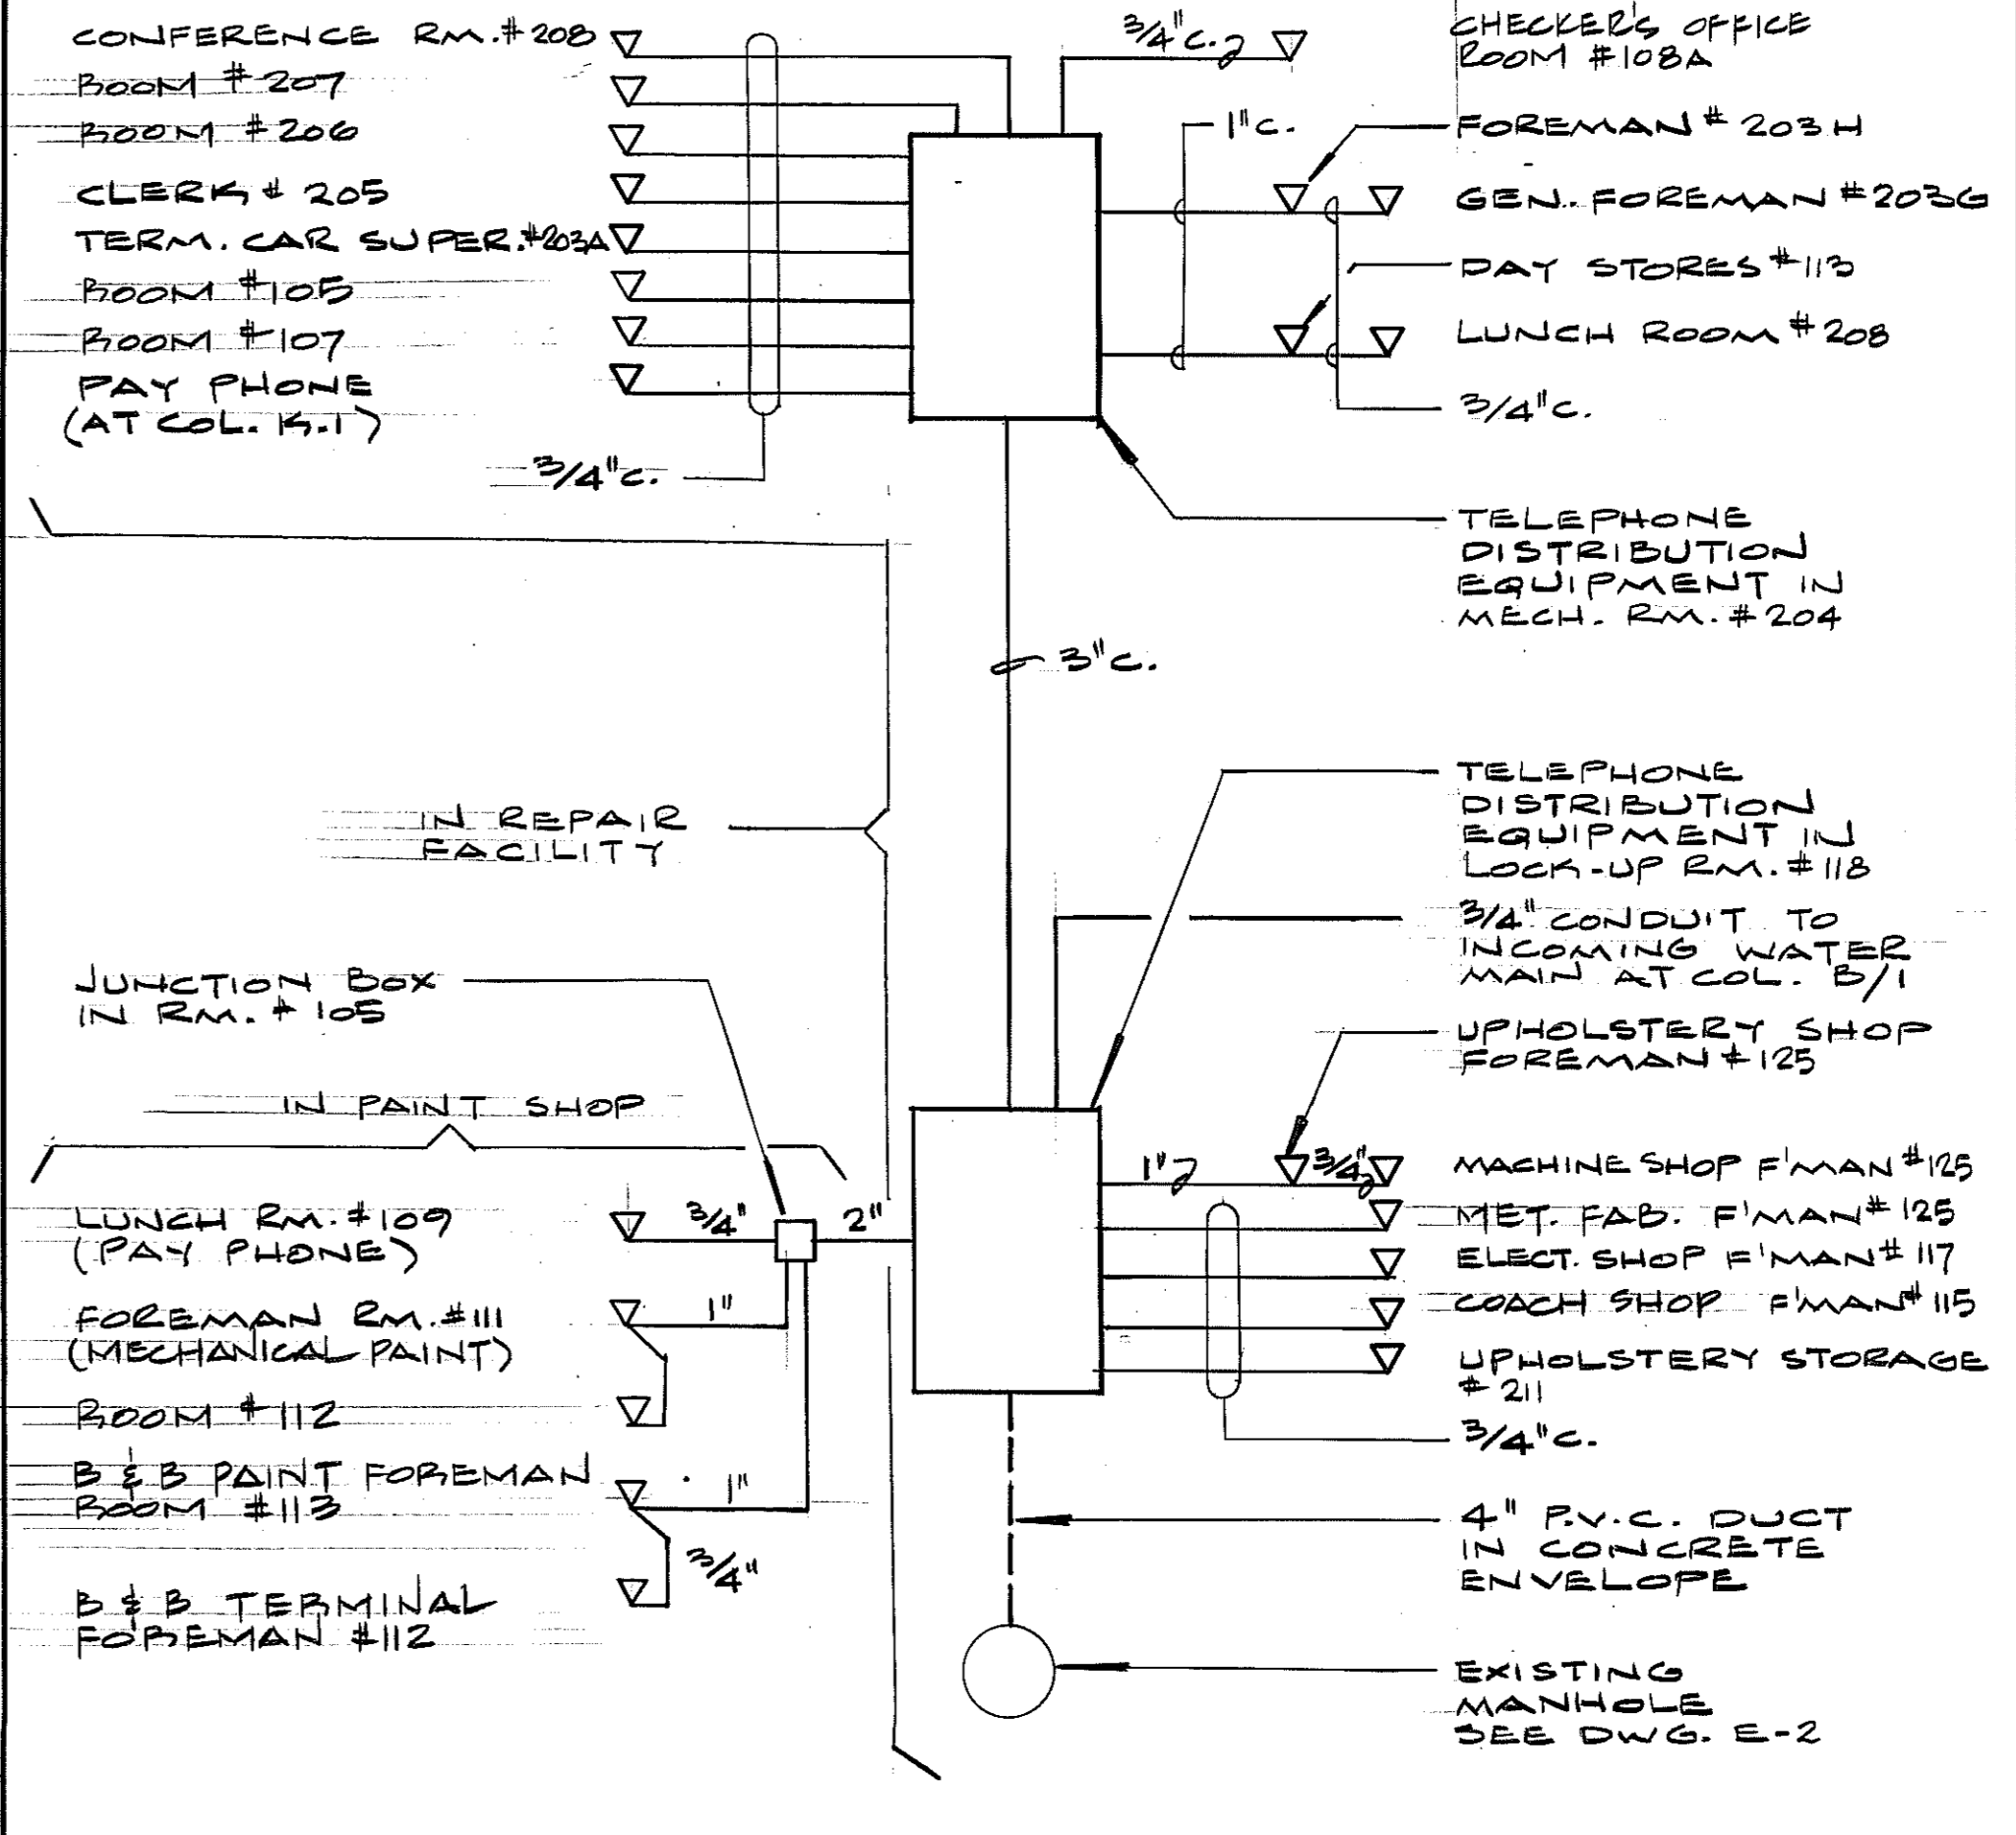 CONFERENCE RM. #208
ROOM #207
ROOM #206
CLERK #205
TERM. CAR SUPER. #203A
ROOM #105
ROOM #107
PAY PHONE
(AT COL. K.1)
3/4"C.
3/4"C.
CHECKER'S OFFICE
ROOM #108A
1"C.
FOREMAN #203H
GEN. FOREMAN #203G
DAY STORES #113
LUNCH ROOM #208
3/4"C.
TELEPHONE
DISTRIBUTION
EQUIPMENT IN
MECH. RM. #204
3"C.
IN REPAIR
FACILITY
TELEPHONE
DISTRIBUTION
EQUIPMENT IN
LOCK-UP RM. #118
3/4" CONDUIT TO
INCOMING WATER
MAIN AT COL. B/1
UPHOLSTERY SHOP
FOREMAN #125
JUNCTION BOX
IN RM. #105
IN PAINT SHOP
LUNCH RM. #109
(PAY PHONE)
3/4"
2"
FOREMAN RM. #111
(MECHANICAL PAINT)
1"
ROOM #112
B & B PAINT FOREMAN
ROOM #113
1"
3/4"
B & B TERMINAL
FOREMAN #112
1"
3/4"
MACHINE SHOP F'MAN #125
MET. FAB. F'MAN #125
ELECT. SHOP F'MAN #117
COACH SHOP F'MAN #115
UPHOLSTERY STORAGE
#211
3/4"C.
4" P.V.C. DUCT
IN CONCRETE
ENVELOPE
EXISTING
MANHOLE
SEE DWG. E-2